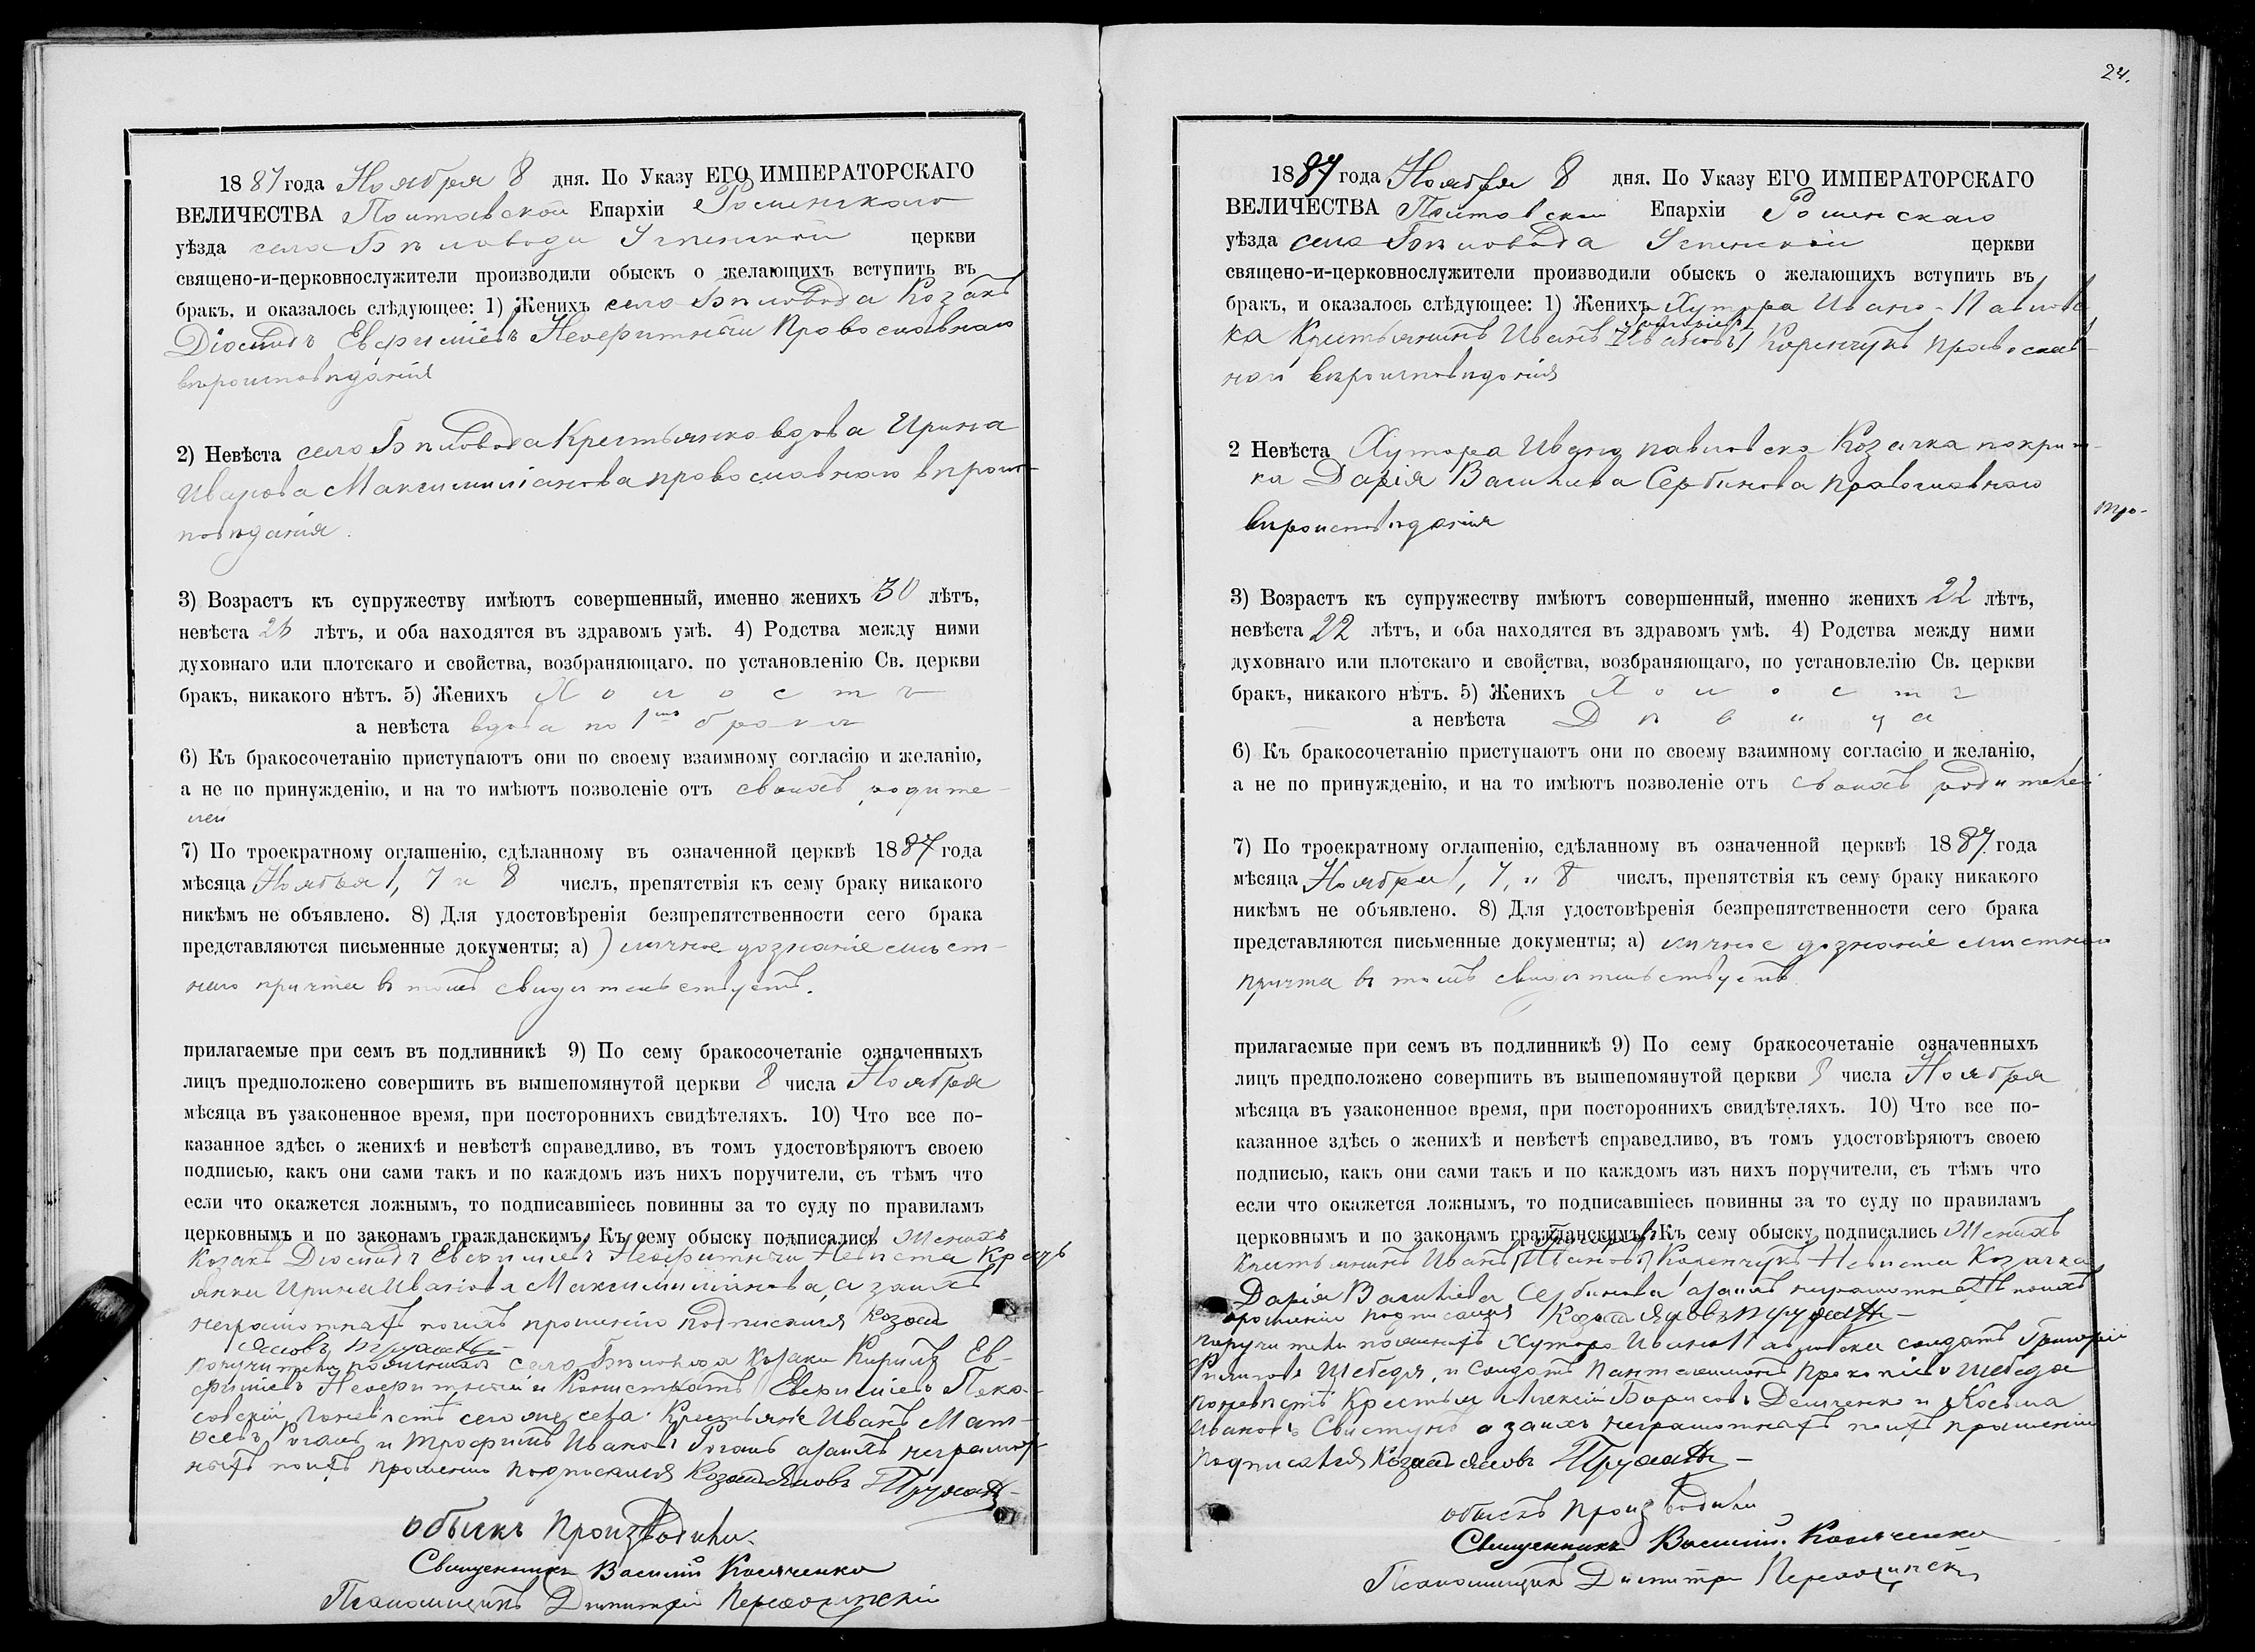 1887 года Ноября 8 дня. По Указу ЕГО ИМПЕРАТОРСКАГО
ВЕЛИЧЕСТВА Полтавской Епархіи Роменскаго
уѣзда села Бѣловода Успенской церкви
священо-и-церковнослужители производили обыскъ о желающихъ вступить въ
бракъ, и оказалось слѣдующее: 1) Женихъ села Бѣловода Козакъ
Діомидъ Евфиміевъ православнаго
вѣроисповѣданія
2) Невѣста села Бѣловода Крестьянка вдова Ирина
Иванова Максимиліанова православнаго вѣроис-
повѣданія.
3) Возрастъ къ супружеству имѣютъ совершенный, именно женихъ 30 лѣтъ,
невѣста 26 лѣтъ, и оба находятся въ здравомъ умѣ. 4) Родства между ними
духовнаго или плотскаго и свойства, возбраняющаго. по установленію Св. церкви
бракъ, никакого нѣтъ. 5) Женихъ Холостъ
а невѣста вдова по 1мъ бракѣ
6) Къ бракосочетанію приступаютъ они по своему взаимному согласію и желанію,
а не по принужденію, и на то имѣютъ позволеніе отъ своихъ родите-
лей
7) По троекратному оглашенію, сдѣланному въ означенной церквѣ 1887 года
мѣсяца Ноября 1, 7 и 8 числъ, препятствія къ сему браку никакого
никѣмъ не объявлено. 8) Для удостовѣренія безпрепятственности сего брака
представляются письменные документы; а) личное дознаніе мѣст-
наго причта въ томъ свидѣтельствуетъ.
прилагаемые при семъ въ подлинникѣ 9) По сему бракосочетаніе означенныхъ
лицъ предположено совершить въ вышепомянутой церкви 8 числа Ноября
мѣсяца въ узаконенное время, при постороннихъ свидѣтеляхъ. 10) Что все по-
казанное здѣсь о женихѣ и невѣстѣ справедливо, въ томъ удостовѣряютъ своею
подписью, какъ они сами такъ и по каждомъ изъ нихъ поручители, съ тѣмъ что
если что окажется ложнымъ, то подписавшіесь повинны за то суду по правиламъ
церковнымъ и по законамъ гражданскимъ. Къ сему обыску подписались Женихъ
козакъ Діомидъ Евфиміевъ Невѣста Кресть
янка Ирина Иванова Максимиліанова, а за нихъ
неграмотныхъ по ихъ прошенію подписался Козакъ
поручители по женихѣ села Бѣловода козаки Кирилъ Ев-
фиміевъ и Евфиміевъ
по невѣстѣ сего же села Крестьяне Иванъ Мат-
и Трофимъ Ивановъ а за нихъ неграмот-
ныхъ по ихъ прошенію подписался Козакъ
обыскъ производили.
Священникъ Василій
Псаломщикъ Димитрій
24.
1887 года Ноября 8 дня. По Указу ЕГО ИМПЕРАТОРСКАГО
ВЕЛИЧЕСТВА Полтавской Епархіи Роменскаго
уѣзда села Бѣловода Успенской церкви
священо-и-церковнослужители производили обыскъ о желающихъ вступить въ
бракъ, и оказалось слѣдующее: 1) Женихъ Хутора Ивано-Павловс
ка Крестьянинъ Иванъ Коренчукъ православ-
наго вѣроисповѣданія
2 Невѣста Хутора Ивано павловска Козачка
Дарія Васильева Сербинова православнаго
вѣроисповѣданія
3) Возрастъ къ супружеству имѣютъ совершенный, именно женихъ 22 лѣтъ,
невѣста 22 лѣтъ, и оба находятся въ здравомъ умѣ. 4) Родства между ними
духовнаго или плотскаго и свойства, возбраняющаго, по установлелію Св. церкви
бракъ, никакого нѣтъ. 5) Женихъ Холостъ
а невѣста Дѣвица
6) Къ бракосочетанію приступаютъ они по своему взаимному согласію и желанію,
а не по принужденію, и на то имѣютъ позволеніе отъ своихъ родителей
7) По троекратному оглашенію, сдѣланному въ означенной церквѣ 1887 года
мѣсяца Ноября 1, 7, и 8 числъ, препятствія къ сему браку никакого
никѣмъ не объявлено. 8) Для удостовѣренія безпрепятственности сего брака
представляются письменные документы; а) личное дознаніе мѣстнаго
причта въ томъ свидѣтельствуетъ
прилагаемые при семъ въ подлинникѣ 9) По сему бракосочетаніе означенныхъ
лицъ предположено совершить въ вышепомянутой церкви 8 числа Ноября
мѣсяца въ узаконенное время, при постороннихъ свидѣтеляхъ. 10) Что все по-
казанное здѣсь о женихѣ и невѣстѣ справедливо, въ томъ удостовѣряютъ своею
подписью, какъ они сами такъ и по каждомъ изъ нихъ поручители, съ тѣмъ что
если что окажется ложнымъ, то подписавшіесь повинны за то суду по правиламъ
церковнымъ и по законамъ гражданскимъ. Къ сему обыску подписались Женихъ
Крестьянинъ Иванъ Коренчукъ Невѣста Козачка
Дарія Васильева Сербинова а за нихъ неграмотныхъ по ихъ
прошенію подписался Козакъ
поручители по женихѣ Хутора Ивано Павловска солдатъ Григорій
Шебеда, и Солдатъ Пантелеймонъ Прокопіевъ Шебеда
по невѣстѣ Крестьяне Алексій Борисовъ Демченко и Косьма
Ивановъ Свистунъ а за нихъ неграмотныхъ по ихъ прошенію
подписался Козакъ
обыскъ производили
Священникъ Василій
Псаломщикъ Димитрій